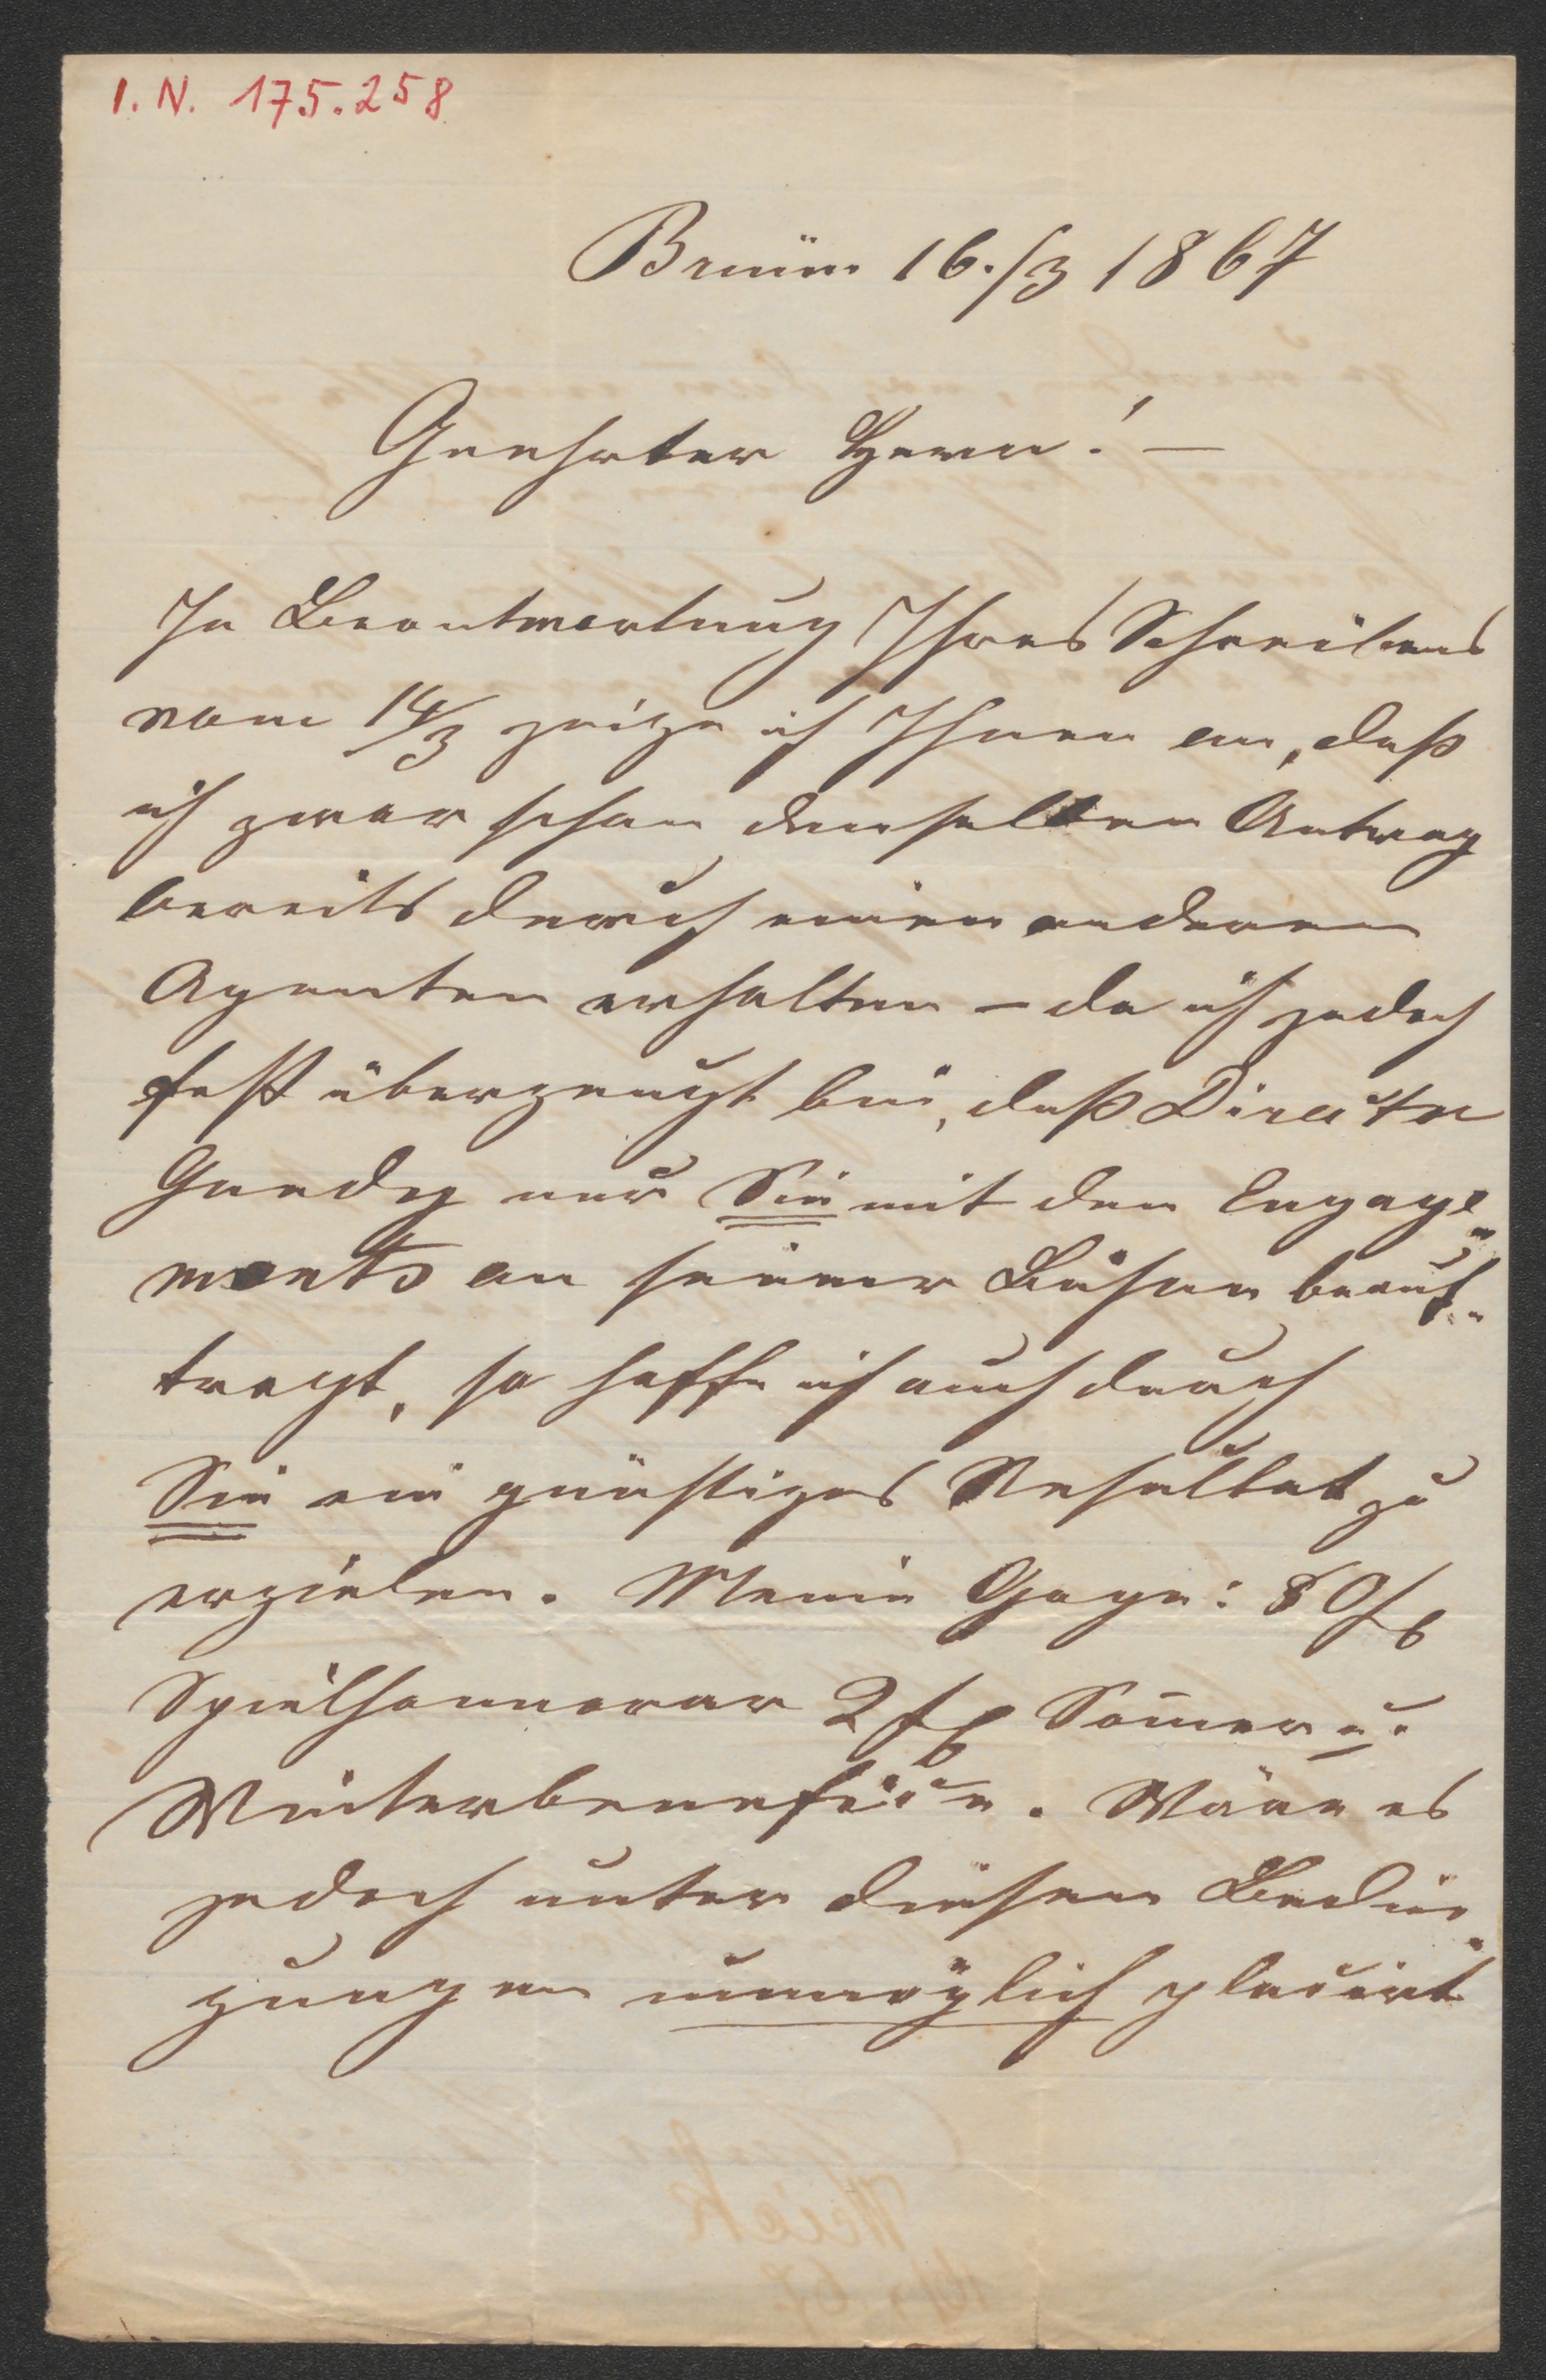 I. N. 175.258
Brünn 16./3 1867
Geehrter Herr! —
In Beantwortung Ihres Schreibens
vom 14/3 zeige ich Ihnen an, daß
ich zwar schon denselben Antrag
bereits durch einen anderen
Agenten erhalten – da ich jedoch
fest überzeugt bin, daß Director
nur Sie mit den Engage„
ments an seiner Bühne beauf„
tragt, so hoffe ich auch durch
Sie ein günstiges Resultat zu
erzielen. Meine Gage: 80 f
Spielhonnorar 2 f Som̄er u.
Winterbenefice. Wäre es
jedoch unter diesen Bedin„
gungen unmöglich placirt